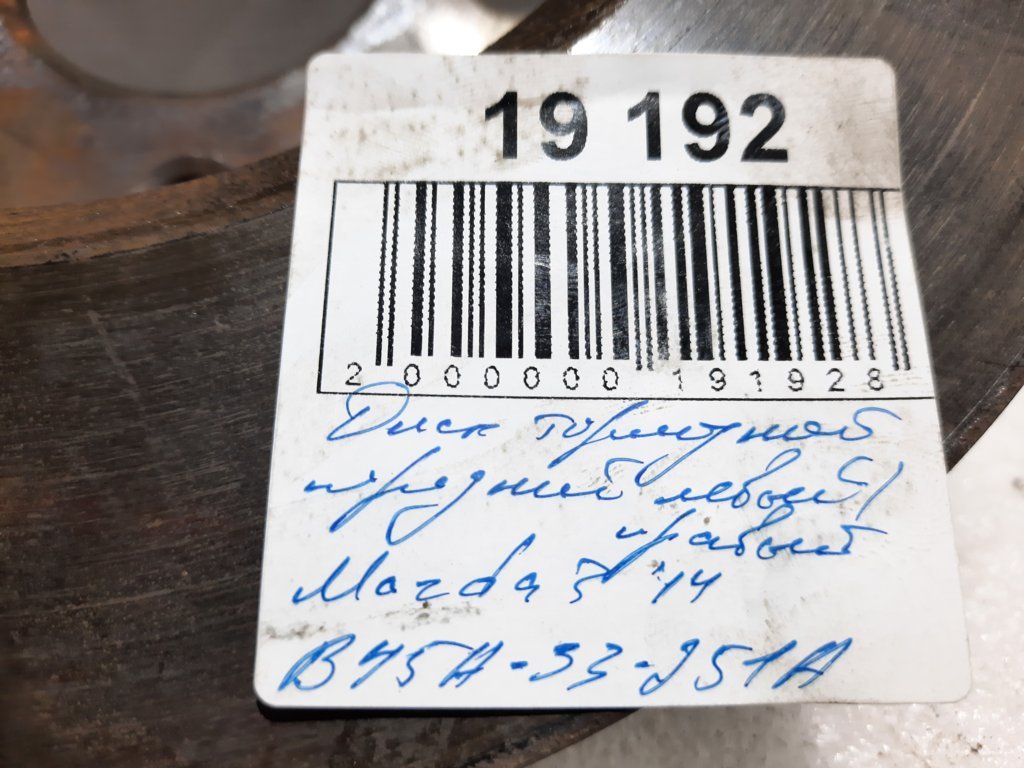 19 192
2 000000 191928
Диск тормозной
передний левый/
правый
Mazda 3 '14
B45A-33-251A